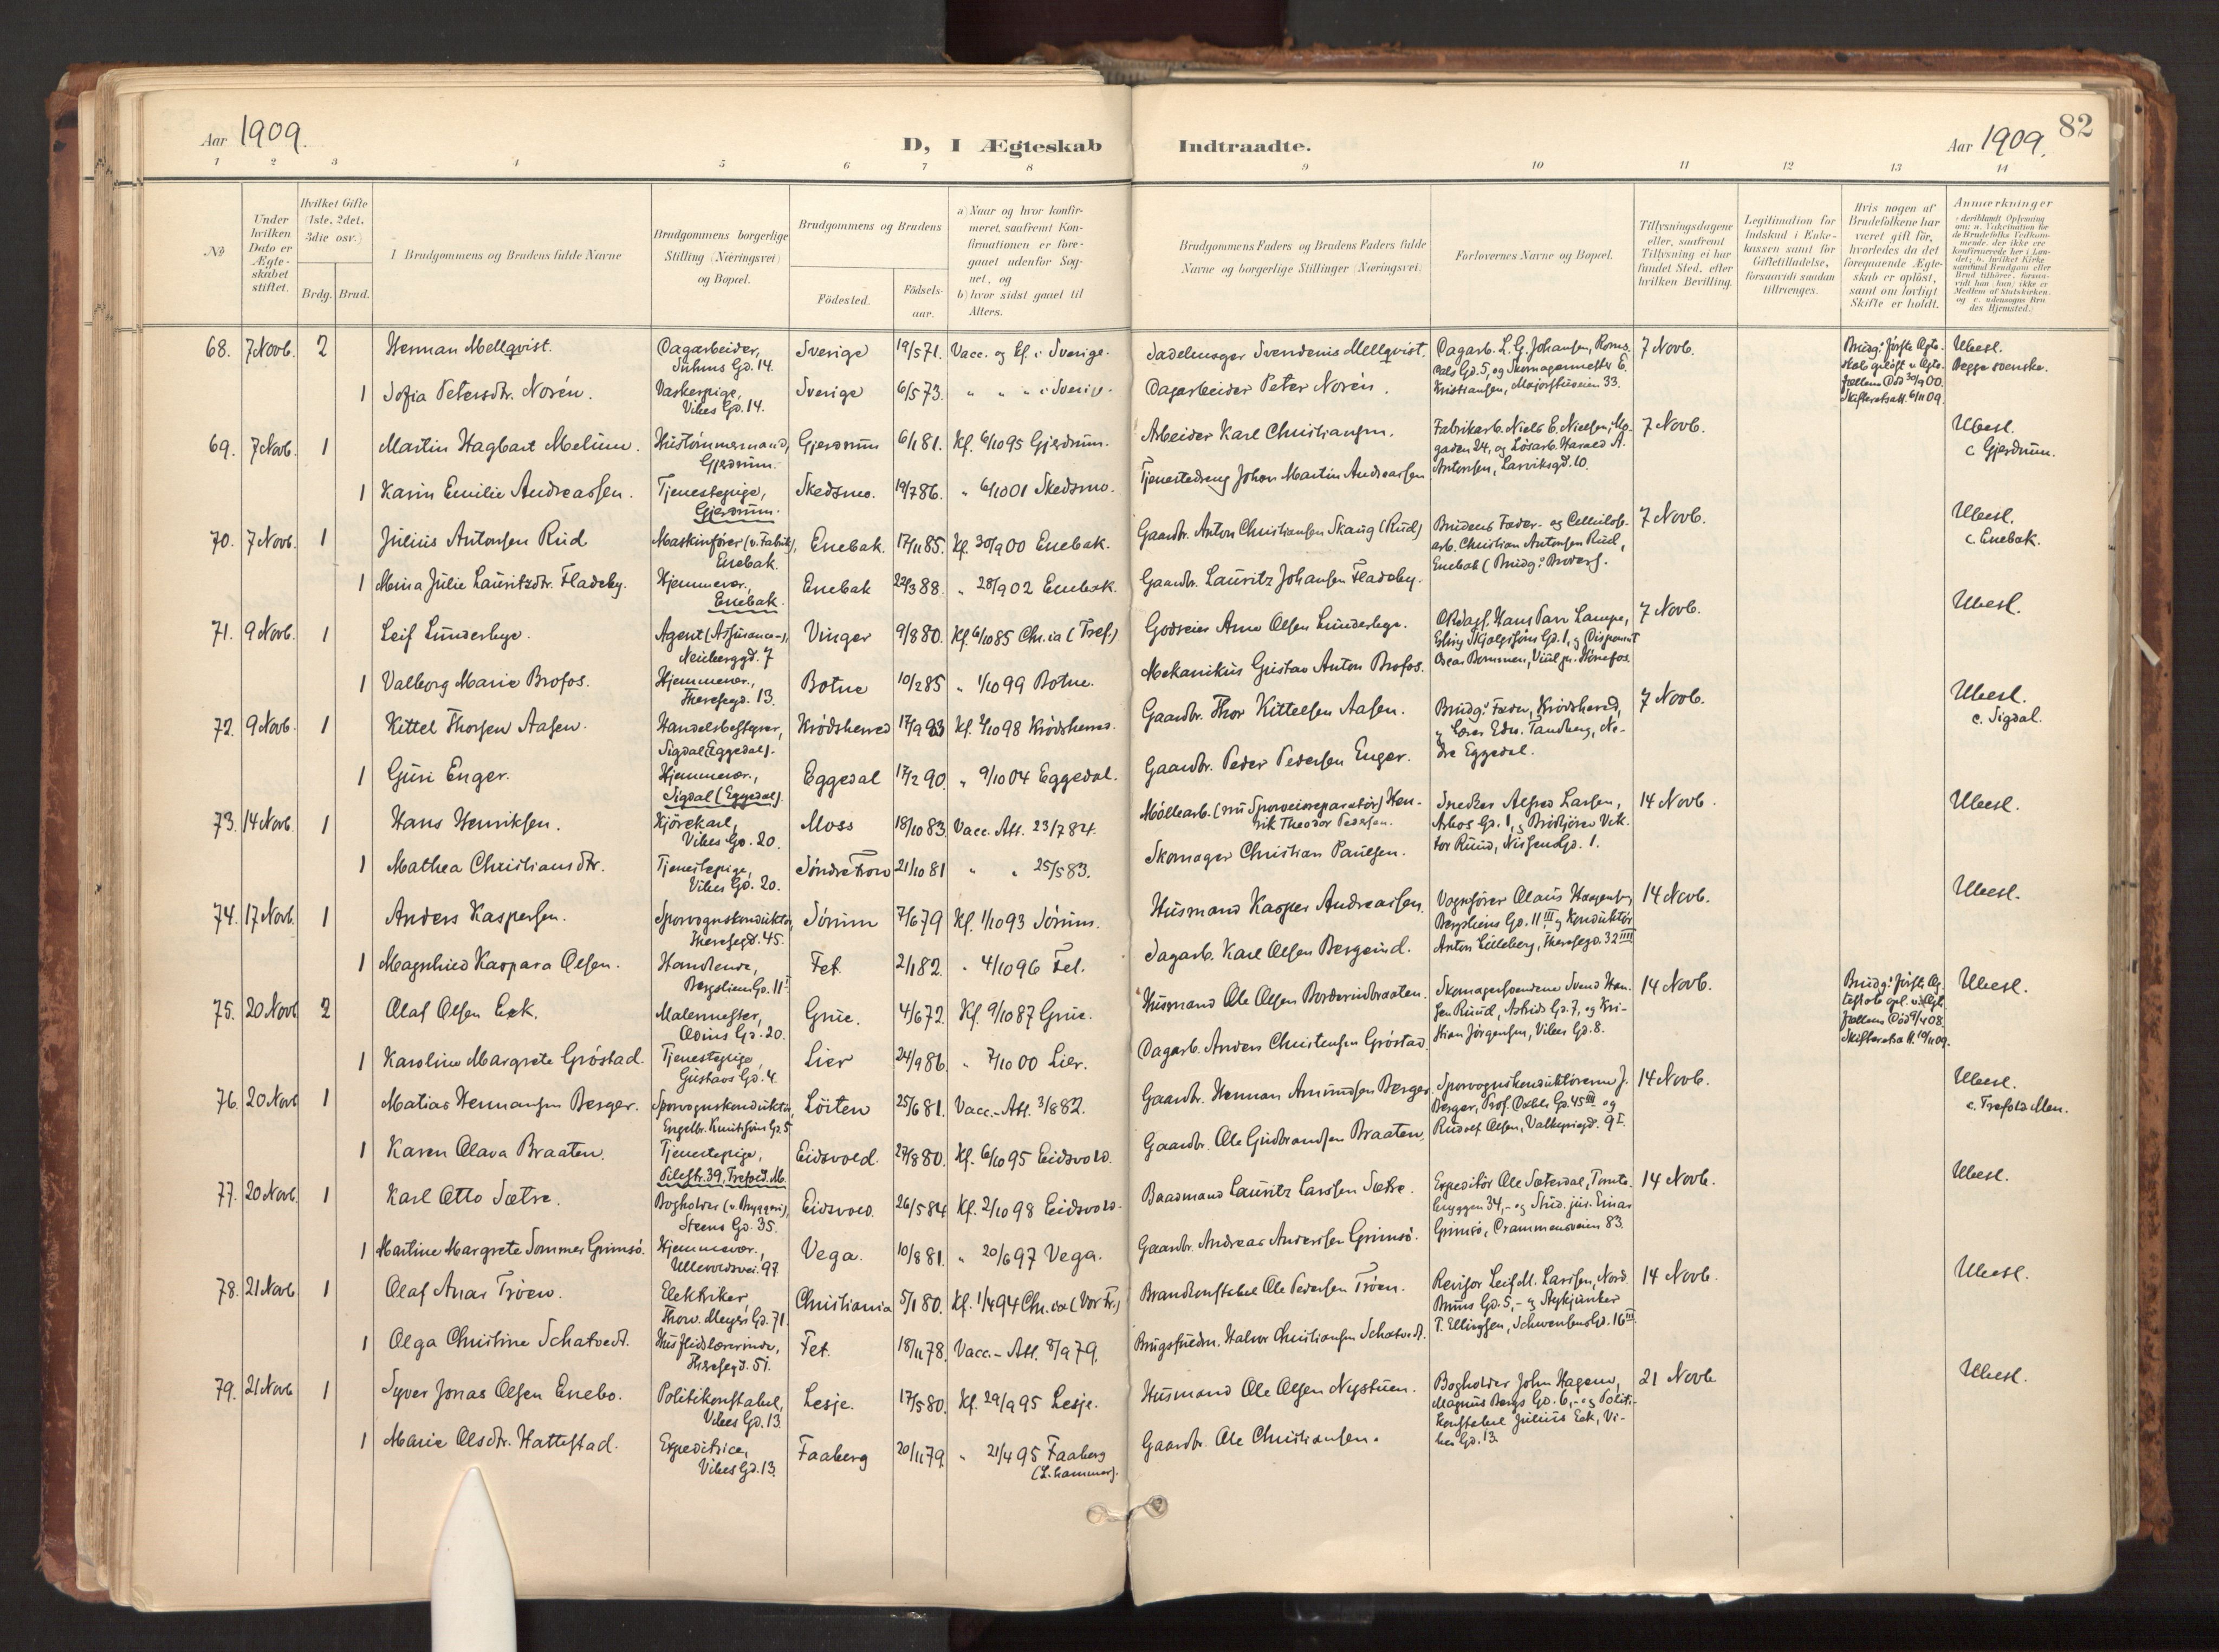 Aar 1909.
D, I Ægteskab Indtraadte.
Aar 1909.
82
1 2 3 4 5 6 7 8 9 10 11 12 13 14
No
Under hvilken Dato er Ægteskabet stiftet.
Hvilket Gifte (1ste, 2det, 3die osv.)
Brdg. Brud.
Brudgommens og Brudens fulde Navne
Brudgommens borgerlige Stilling (Næringsvei) og Bopæl.
Brudgommens og Brudens
Födested.
Födselsaar.
a) Naar og hvor konfirmeret, saafremt Konfirmationen er foregaaet udenfor Sognet, og
b) hvor sidst gaaet til Alters.
Brudgommens Faders og Brudens Faders fulde Navne og borgerlige Stillinger (Næringsvei)
Forlovernes Navne og Bopæl.
Tillysningsdagene eller, saafremt Tillysning ei har fundet Sted, efter hvilken Bevilling.
Legitimation for Indskud i Enkekassen samt for Giftetilladelse, forsaavidt saadan tiltrænges.
Hvis nogen af Brudefolkene har været gift för, hvorledes da det foregaaende Ægteskab er oplöst, samt om lovligt Skifte er holdt.
Anmærkninger
68. 7 Novb. 2 Herman Mellqvist. Dagarbeider, Suhms Gd. 14. Sverige 19/5 71. Vacc. og Kf. i Sverige. Sadelmager Svendenis Mellqvist. Dagarb. L. G. Johansen, Romsdals Gd. 5, og Skomagermester E. Kristiansen, Majorstuveien 33. 7 Novb. Brudg.s förste Ægteskab oplöst v. Ægtefællens Död 30/9 00. Skifteretsatt. 6/11 09. Ubesl. Begge svenske.
1 Sofia Petersdtr. Norén. Vaskerpige, Vibes Gd. 14. Sverige 6/5 73. " " " i Sverig. Dagarbeider Peter Norén.
69. 7 Novb. 1 Martin Hagbart Melum. Hustömmermand, Gjerdrum. Gjerdrum 6/1 81. Kf. 6/10 95 Gjerdrum. Arbeider Karl Christiansen. Fabrikarb. Niels E. Nielsen, gaden 24, og Lösarb. Harald A. Antonsen, Larviksgd. 10. 7 Novb. Ubesl. c. Gjerdrum.
1 Karin Emilie Andreassen. Tjenestepige, Gjerdrum. Skedsmo. 19/7 86. " 6/10 01 Skedsmo. Tjenestedreng Johan Martin Andreassen
70. 7 Novb. 1 Julius Antonsen Rud Maskinförer (v. Fabrik), Enebak. Enebak. 17/11 85. Kf. 30/9 00 Enebak. Gaardbr. Anton Christiansen Skaug (Rud) Brudens Fader- og Cellulosearb. Christian Antonsen Rud, Enebak (Brudg.s Broder). 7 Novb. Ubesl. c. Enebak.
1 Mina Julie Lauritzdtr. Fladeby. Hjemmevær., Enebak. Enebak 22/3 88. " 28/9 02 Enebak. Gaardbr. Lauritz Johansen Fladeby.
71. 9 Novb. 1 Leif Lunderbye. Agent (Assurance-), Neuberggd. 7 Vinger 9/8 80. Kf. 6/10 85 Chr.ia (Tref.) Godseier Arne Olsen Lunderbye. Hans Lampe, Erling Skjalgssöns Gd. 1, og Disponent Oscar Bommen, Viul pr. Hönefos. 7 Novb. Ubesl.
1 Valborg Marie Brofos. Hjemmevær., Theresegd. 13. Botne 10/2 85 " 1/10 99 Botne. Mekanikus Gustav Anton Brofos.
72. 9 Novb. 1 Kittel Thorsen Aasen. Handelsbestyrer, Sigdal (Eggedal). Krödsherred 17/9 83 Kf. 2/10 98 Krödsherred. Gaardbr. Thor Kittelsen Aasen. Brudg.s Fader, Krödsherred, og Lærer Edv. Tandberg, Nedre Eggedal. 7 Novb. Ubesl. c. Sigdal.
1 Guri Enger. Hjemmevær., Sigdal (Eggedal). Eggedal 17/2 90. " 9/10 04 Eggedal. Gaardbr. Peder Pedersen Enger.
73. 14 Novb. 1 Hans Henriksen. Kjörekarl, Vibes Gd. 20. Moss 18/10 83 Vacc. Att. 23/7 84. Möllearb. (nu Sporveisreparatör) Henrik Theodor Pedersen. Snedker Alfred Larsen, Arbos Gd. 1, og Brödkjörer Viktor Ruud, Nissens Gd. 1. 14 Novb. Ubesl.
1 Mathea Christiansdtr. Tjenestepige, Vibes Gd. 20. Söndre Fron 21/10 81 " " 25/5 83. Skomager Christian Paulsen.
74. 17 Novb. 1 Anders Kaspersen. Sporvognskonduktör, Theresegd. 45. Sörum 7/6 79 Kf. 1/10 93 Sörum. Husmand Kasper Andreassen. Vognförer Olaus Haagensen, Bergsliens Gd. 11 III, og Konduktör Anton Lilleberg, Theresegd. 32 IIII 14 Novb. Ubesl.
1 Magnhild Kaspara Olsen. Handlende, Bergsliens Gd. 11 I Fet. 2/1 82. " 4/10 96 Fet. Dagarb. Karl Olsen Bergerud.
75. 20 Novb. 2 Olaf Olsen Eek. Malermester, Odins Gd. 20. Grue. 4/6 72. Kf. 9/10 87 Grue. Husmand Ole Olsen Borderudbraaten. Skomagersvendene Svend Hansen Ruud, Astrids Gd. 7, og Kristian Jörgensen, Vibes Gd. 8. 14 Novb. Brudg.s förste Ægteskab opl. v. Ægtefællens Död 9/4 08. Skifteretsatt. 19/11 09. Ubesl.
1 Karoline Margrete Gröstad. Tjenestepige, Gustavs Gd. 4. Lier 24/9 86. " 7/10 00 Lier. Dagarb. Anders Christensen Gröstad.
76. 20 Novb. 1 Matias Hermansen Berger. Sporvognskonduktör, Engelbr. Knutssöns Gd. 5 Löiten 25/6 81. Vacc.-Att. 3/8 82. Gaardbr. Herman Amundsen Berger Sporvognskonduktörerne J. Berger, Prof. Dahls Gd. 45 III og Rudolf Olsen, Valkyriegd. 9 I. 14 Novb. Ubesl. c. Trefold. Men.
1 Karen Olava Braaten. Tjenestepige, Pilestr. 39, Trefold. M. Eidsvold. 27/8 80. Kf. 6/10 95 Eidsvold. Gaardbr. Ole Gudbrandsen Braaten.
77. 20 Novb. 1 Karl Otto Sætre. Bogholder (v. Bryggeri), Steens Gd. 35. Eidsvold. 26/5 84. Kf. 2/10 98 Eidsvold. Baadmand Lauritz Larssen Sætre. Expeditör Ole Sæterdal, Tomtebryggen 34,- og Stud. jur. Einar Grimsö, Drammensveien 83. 14 Novb. Ubesl.
1 Martine Margrete Sommer Grimsö. Hjemmevær., Ullevoldsvei. 97. Vega. 10/8 81. " 20/6 97 Vega. Gaardbr. Andreas Anderssen Grimsö.
78. 21 Novb 1 Olaf Anar Tröen. Elektriker, Thorv. Meyers Gd. 71. Christiania 5/1 80. Kf. 1/4 94 Chr.ia (Vor Fr.) Brandkonstabel Ole Pedersen Tröen. Revisor Leif M. Larssen, Nord. Bruns Gd. 5,- og Stykjunker T. Ellingsen, Schwensens Gd. 16 III. 14 Novb. Ubesl.
1 Olga Christine Schatvedt. Husflidslærerinde, Theresegd. 51. Fet. 18/11 78. Vacc.-Att. 8/9 79. Brugsfuldm. Halvor Christiansen Schatvedt.
79. 21 Novb 1 Syver Jonas Olsen Enebo. Politikonstabel, Vibes Gd. 13. Lesje. 17/5 80. Kf. 29/9 95 Lesje. Husmand Ole Olsen Nystuen. Bogholder John Hagen, Magnus Bergs Gd. 6,- og Politikonstabel Julius Eek, Vibes Gd. 13. 21 Novb Ubesl.
1 Marie Olsdtr. Hattestad. Expeditrice, Vibes Gd. 13. Faaberg 20/11 79. " 21/4 95 Faaberg (L.hammer). Gaardbr. Ole Christiansen.